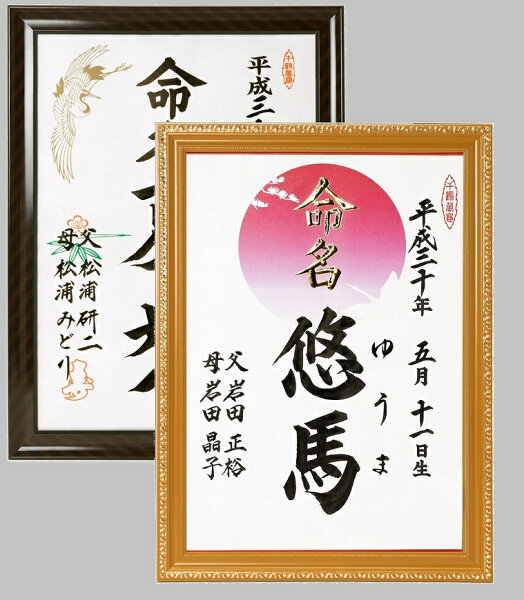 千鶴萬亀
平成三十年 五月 十一日生
命名
悠馬
ゆうま
父 岩田 正裕
母 岩田 晶子
平成三
命名
父 松浦研二
母 松浦みどり